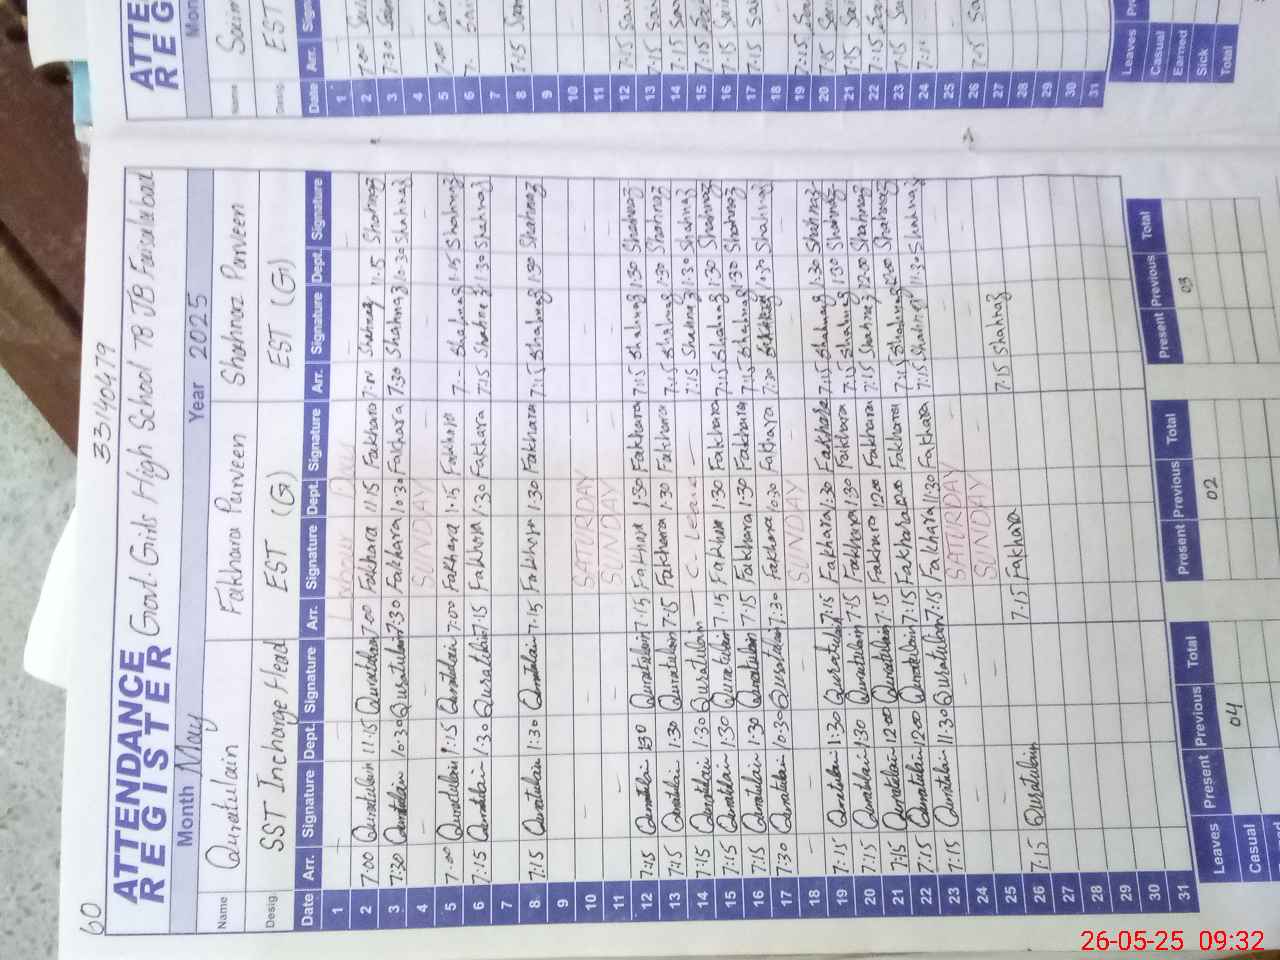 60
33140479
ATTENDANCE REGISTER Govt. Girls High School 78 JB Faisalabad
Month May Year 2025
Name Quratulain Fakhara Parveen Shahnaz Parveen
Desig. SST Incharge Head EST (G) EST (G)
Date Arr. Signature Dept. Signature Arr. Signature Dept. Signature Arr. Signature Dept. Signature
1 Labour Day
2 7:00 Quratulain 11:15 Quratulain 7:00 Fakhara 11:15 Fakhara Shahnaz 11:15 Shahnaz
3 7:30 Quratulain 10:30 Quratulain 7:30 Fakhara 10:30 Fakhara 7:30 Shahnaz 10:30 Shahnaz
4 SUNDAY
5 7:00 Quratulain 1:15 Quratulain 7:00 Fakhara 1:15 Fakhara Shahnaz 1:15 Shahnaz
6 7:15 Quratulain 1:30 Quratulain 7:15 Fakhara 1:30 Fakhara 7:15 Shahnaz 1:30 Shahnaz
7
8 7:15 Quratulain 1:30 Quratulain 7:15 Fakhara 1:30 Fakhara 7:15 Shahnaz 1:30 Shahnaz
9
10 SATURDAY
11 SUNDAY
12 7:15 Quratulain 1:30 Quratulain 7:15 Fakhara 1:30 Fakhara 7:15 Shahnaz 1:30 Shahnaz
13 7:15 Quratulain 1:30 Quratulain 7:15 Fakhara 1:30 Fakhara 7:15 Shahnaz 1:30 Shahnaz
14 7:15 Quratulain 1:30 Quratulain C. Leave 7:15 Shahnaz 1:30 Shahnaz
15 7:15 Quratulain 1:30 Quratulain 7:15 Fakhara 1:30 Fakhara 7:15 Shahnaz 1:30 Shahnaz
16 7:15 Quratulain 1:30 Quratulain 7:15 Fakhara 1:30 Fakhara 7:15 Shahnaz 1:30 Shahnaz
17 7:30 Quratulain 10:30 Quratulain 7:30 Fakhara 10:30 Fakhara 7:30 Shahnaz
18 SUNDAY
19 7:15 Quratulain 1:30 Quratulain 7:15 Fakhara 1:30 Fakhara 7:15 Shahnaz 1:30 Shahnaz
20 7:15 Quratulain 1:30 Quratulain 7:15 Fakhara 1:30 Fakhara 7:15 Shahnaz 1:30 Shahnaz
21 7:15 Quratulain 12:00 Quratulain 7:15 Fakhara 12:00 Fakhara 7:15 Shahnaz 12:00 Shahnaz
22 7:15 Quratulain 12:00 Quratulain 7:15 Fakhara 12:00 Fakhara 7:15 Shahnaz 12:00 Shahnaz
23 7:15 Quratulain 11:30 Quratulain 7:15 Fakhara 11:30 Fakhara 7:15 Shahnaz 11:30 Shahnaz
24 SATURDAY
25 SUNDAY
26 7:15 Quratulain 7:15 Fakhara 7:15 Shahnaz
27
28
29
30
31
Leaves Present Previous Total Present Previous Total Present Previous Total
Casual 04 02 03
ATTE
REG
Mon
Name
Desig. EST
Date Arr.
1
2 7:00
3 7:30
4
5 7:00
6
7
8 7:15
9
10
11
12 7:15
13 7:15
14 7:15
15 7:15
16 7:15
17 7:15
18
19 7:15
20 7:15
21 7:15
22 7:15
23 7:15
24
25
26 7:15
27
28
29
30
31
Leaves
Casual
Earned
Sick
Total
26-05-25 09:32